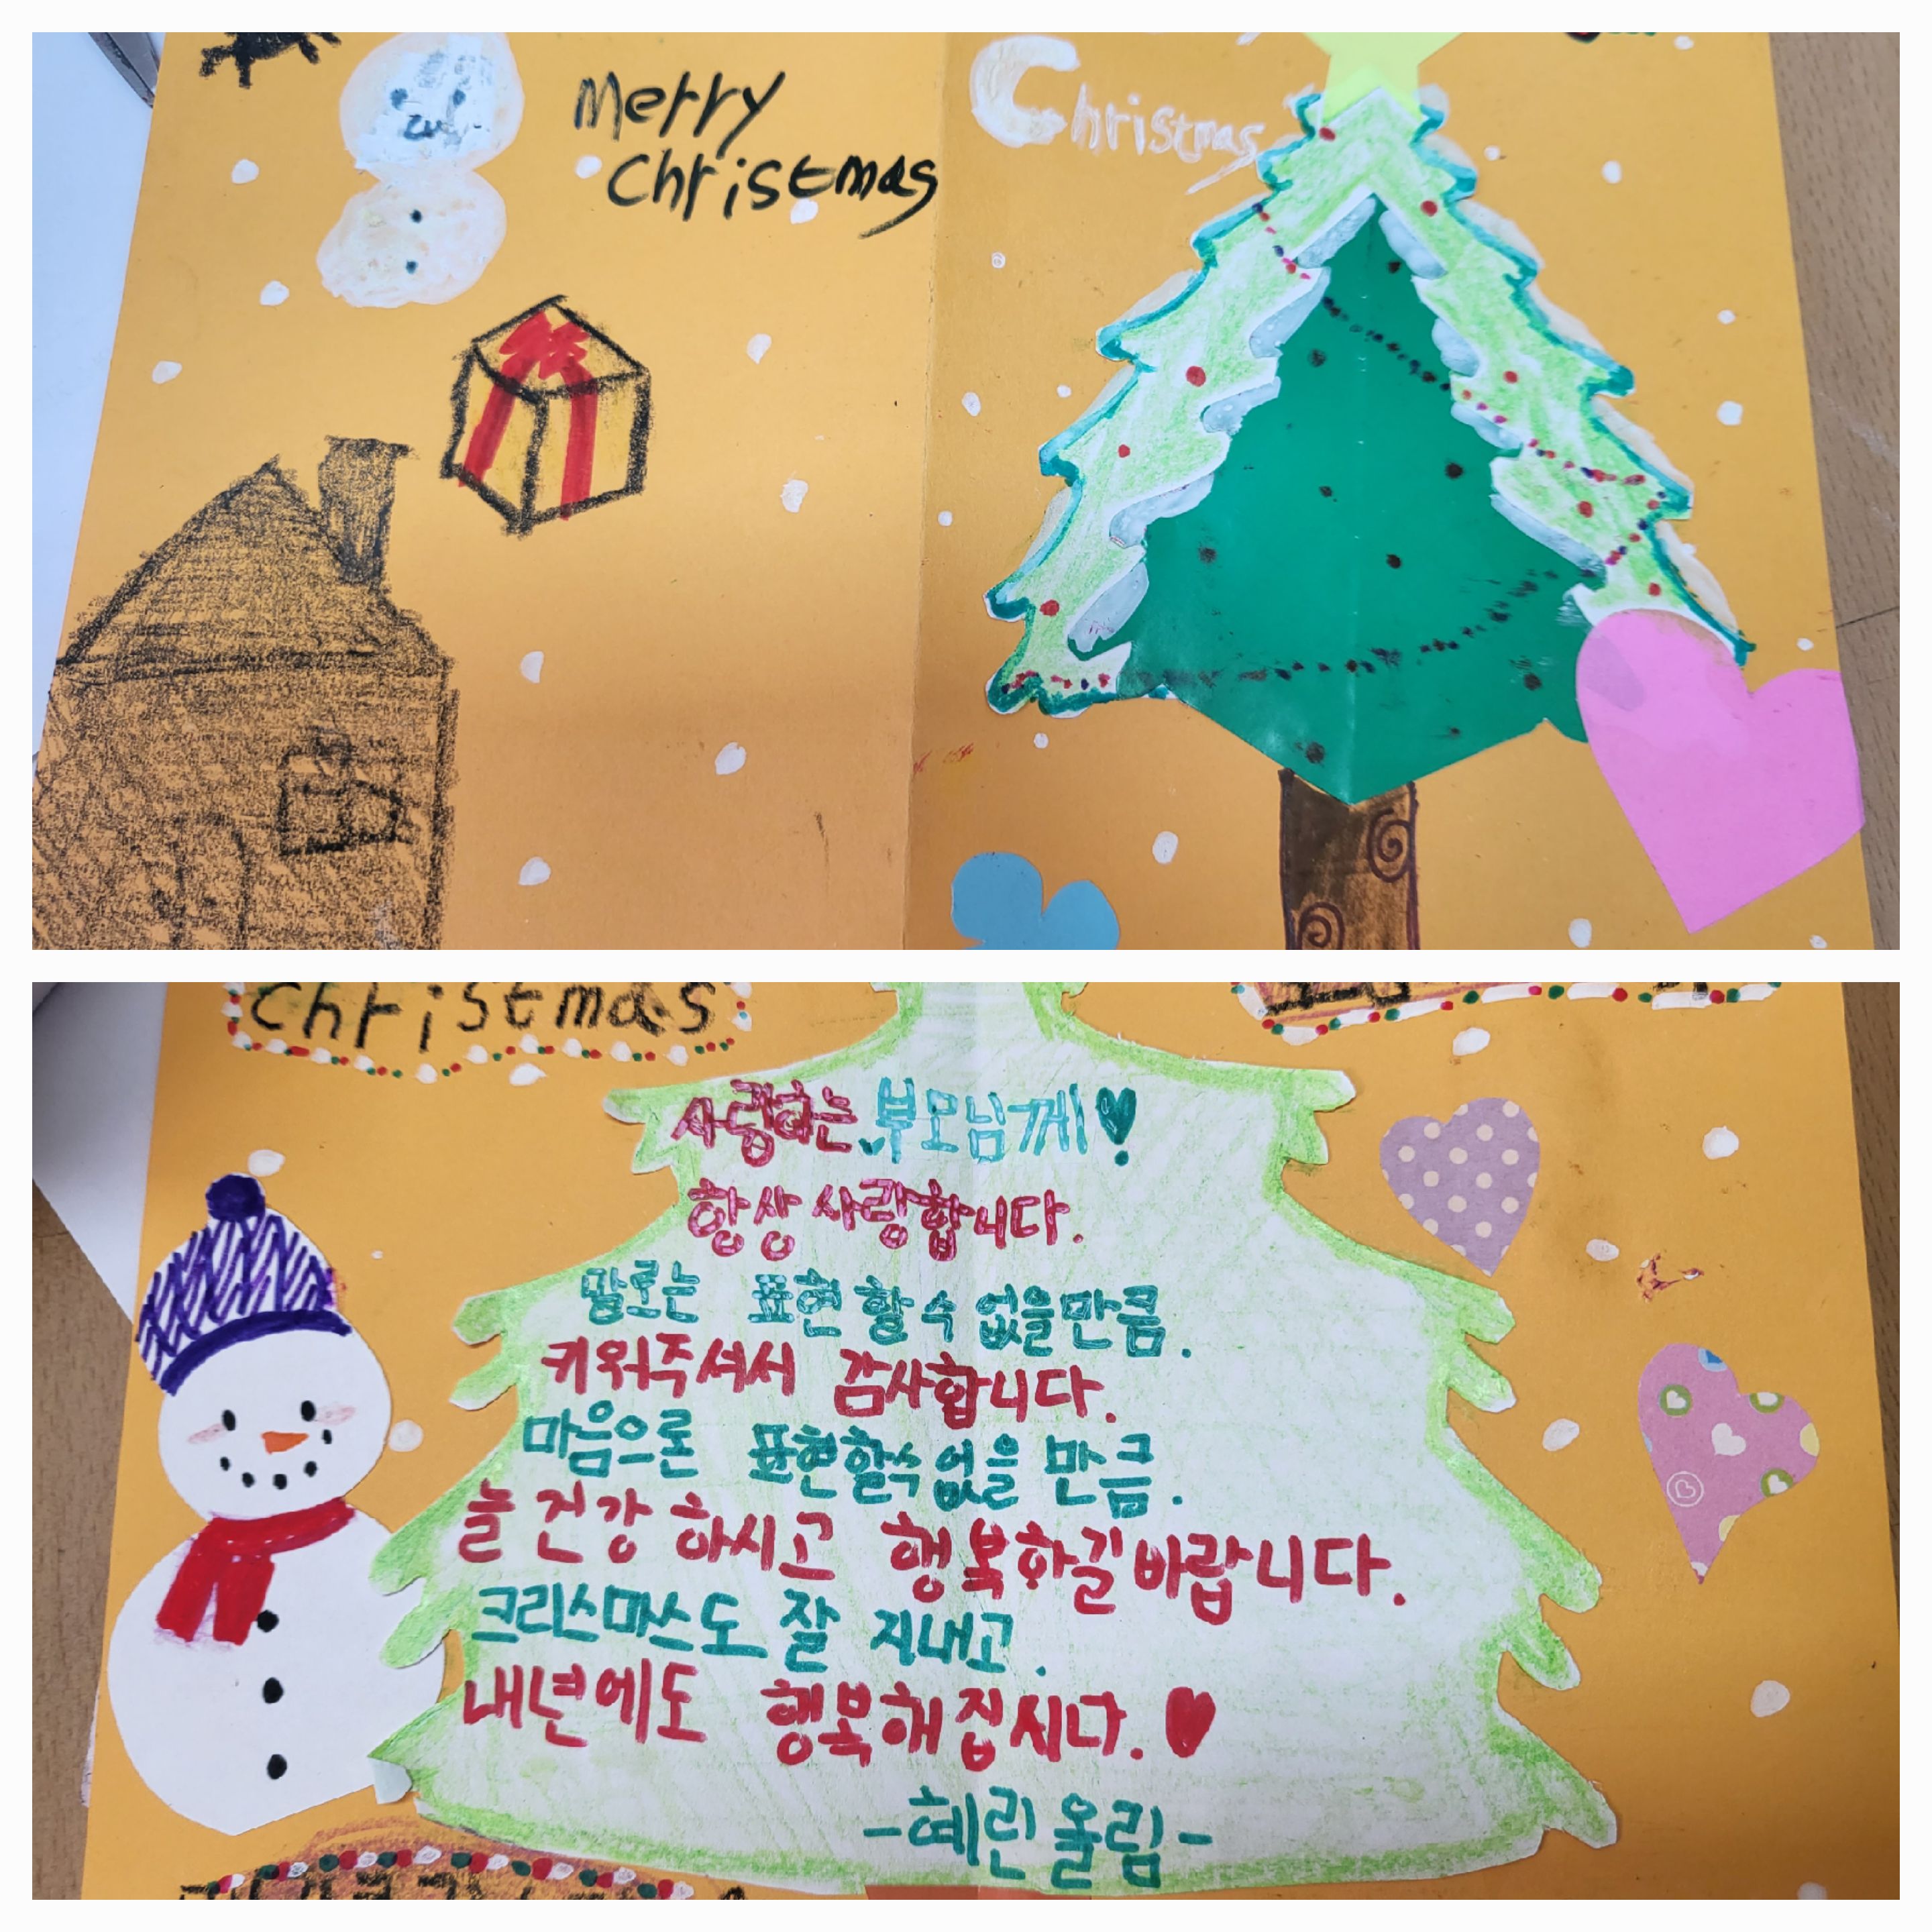 Merry
Christmas
Christmas
Christmas
사랑하는 부모님께!♥
항상 사랑합니다.
말로는 표현 할 수 없을만큼.
키워주셔서 감사합니다.
마음으론 표현할수 없을 만큼.
늘 건강 하시고 행복하길 바랍니다.
크리스마스도 잘 지내고.
내년에도 행복해집시다.♥
-혜린 올림-